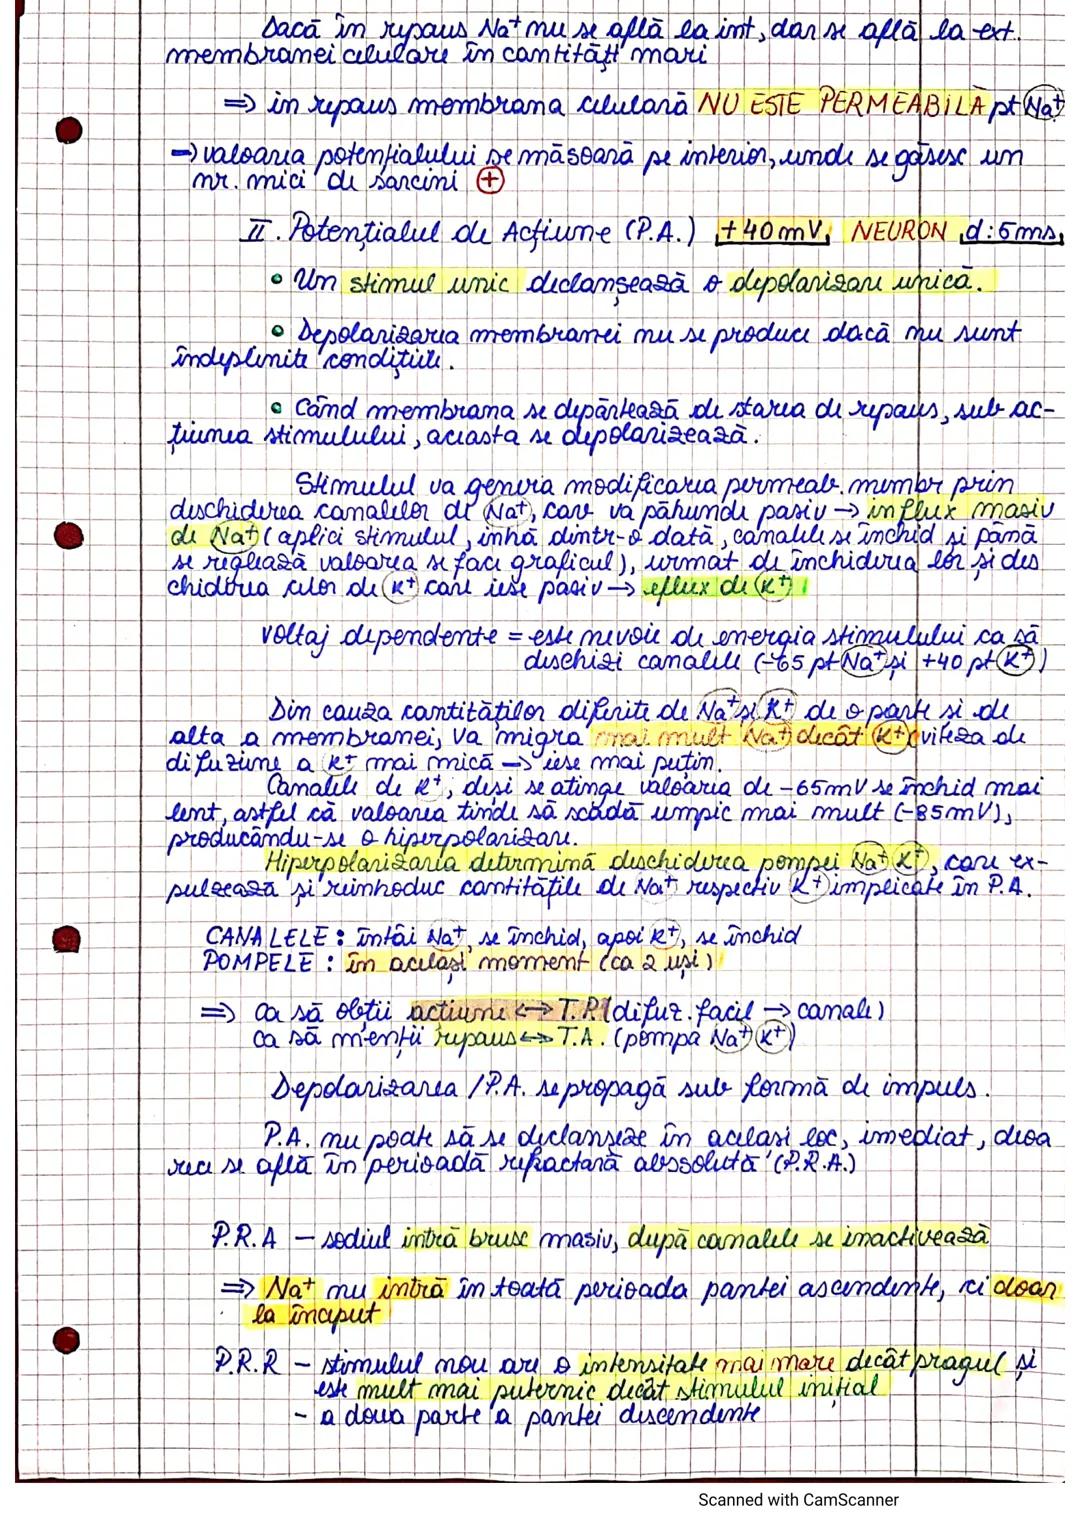 Dacă în repaus Na+ nu se află la int, dar se află la ext.
membranei celulare în cantități mari
=> în repaus membrana celulară NU ESTE PERMEABILĂ pt Na+
→ valoarea potențialului se măsoară pe interior, unde se găsesc un
nr. mici de sarcini +
II. Potențialul de Acțiune (P.A.) +40mV, NEURON d:5ms,
• Un stimul unic declanșează o depolarizare unică.
• Depolarizarea membranei nu se produce dacă nu sunt
îndeplinite condițiile.
• Când membrana se depărtează de starea de repaus, sub ac-
țiunea stimulului, aceasta se depolarizează.
Stimulul va genera modificarea permeab. membr prin
deschiderea canalelor de Na+, care va pătrunde pasiv → influx masiv
de Na+ (aplici stimulul, intră dintr-o dată, canalele se închid și până
se reglează valoarea se face graficul), urmat de închiderea lor și des
chiderea celor de K+ care iese pasiv → eflux de K+
voltaj dependente = este nevoie de energia stimulului ca să
deschizi canalele (-65 pt Na+ și +40 pt K+)
Din cauza cantităților diferite de Na+ și K+ de o parte și de
alta a membranei, va migra mai mult Na+ decât K+ (viteza de
difuziune a K+ mai mică → iese mai puțin.
Canalele de K+, deși se atinge valoarea de -65mV se închid mai
lent, astfel că valoarea tinde să scadă umpic mai mult (-85mV),
producându-se o hiperpolarizare.
Hiperpolarizarea determină deschiderea pompei Na+ K+, care ex-
pulzează și reintroduc cantitățile de Na+ respectiv K+ implicate în P.A.
CANALELE: întâi Na+, se închid, apoi K+, se închid
POMPELE: în același moment (ca 2 uși)
=> ca să obții acțiune <-> T.P. (difuz. facil → canale)
ca să menții repaus <-> T.A. (pompa Na+ K+)
Depolarizarea /P.A. se propagă sub formă de impuls.
P.A. nu poate să se declanșeze în același loc, imediat, deoa
rece se află în perioadă refractară abssolută (P.R.A.)
P.R.A - sodiul intră brusc masiv, după canalele se inactivează
=> Na+ nu intră în toată perioada pantei ascendente, ci doar
la început
P.R.R - stimulul nou are o intensitate mai mare decât pragul și
este mult mai puternic decât stimulul inițial
- a doua parte a pantei descendente
Scanned with CamScanner